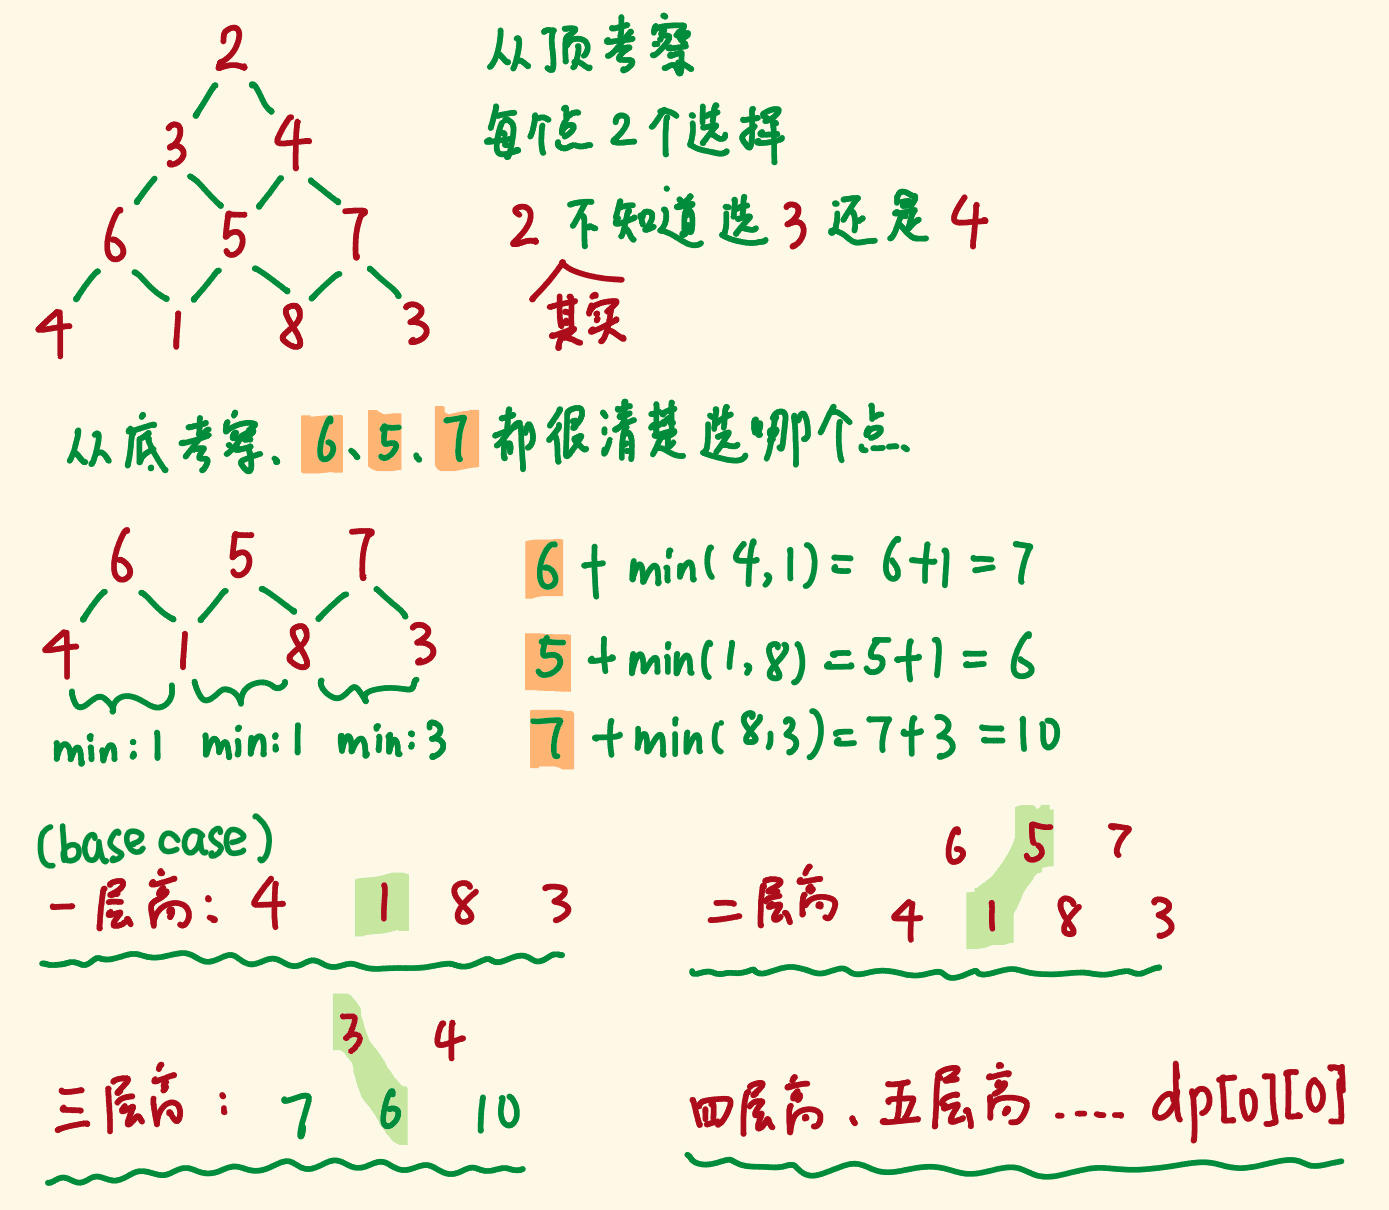 2
3 4
6 5 7
4 1 8 3
从顶考察
每个点 2 个选择
2 不知道选 3 还是 4
其实
从底考察、6、5、7 都很清楚选哪个点、
6 5 7
4 1 8 3
min:1 min:1 min:3
6 + min(4,1) = 6+1 = 7
5 + min(1,8) = 5+1 = 6
7 + min(8,3) = 7+3 = 10
(base case)
一层高: 4 1 8 3
6 5 7
二层高 4 1 8 3
3 4
三层高: 7 6 10
四层高、五层高 ..... dp[0][0]